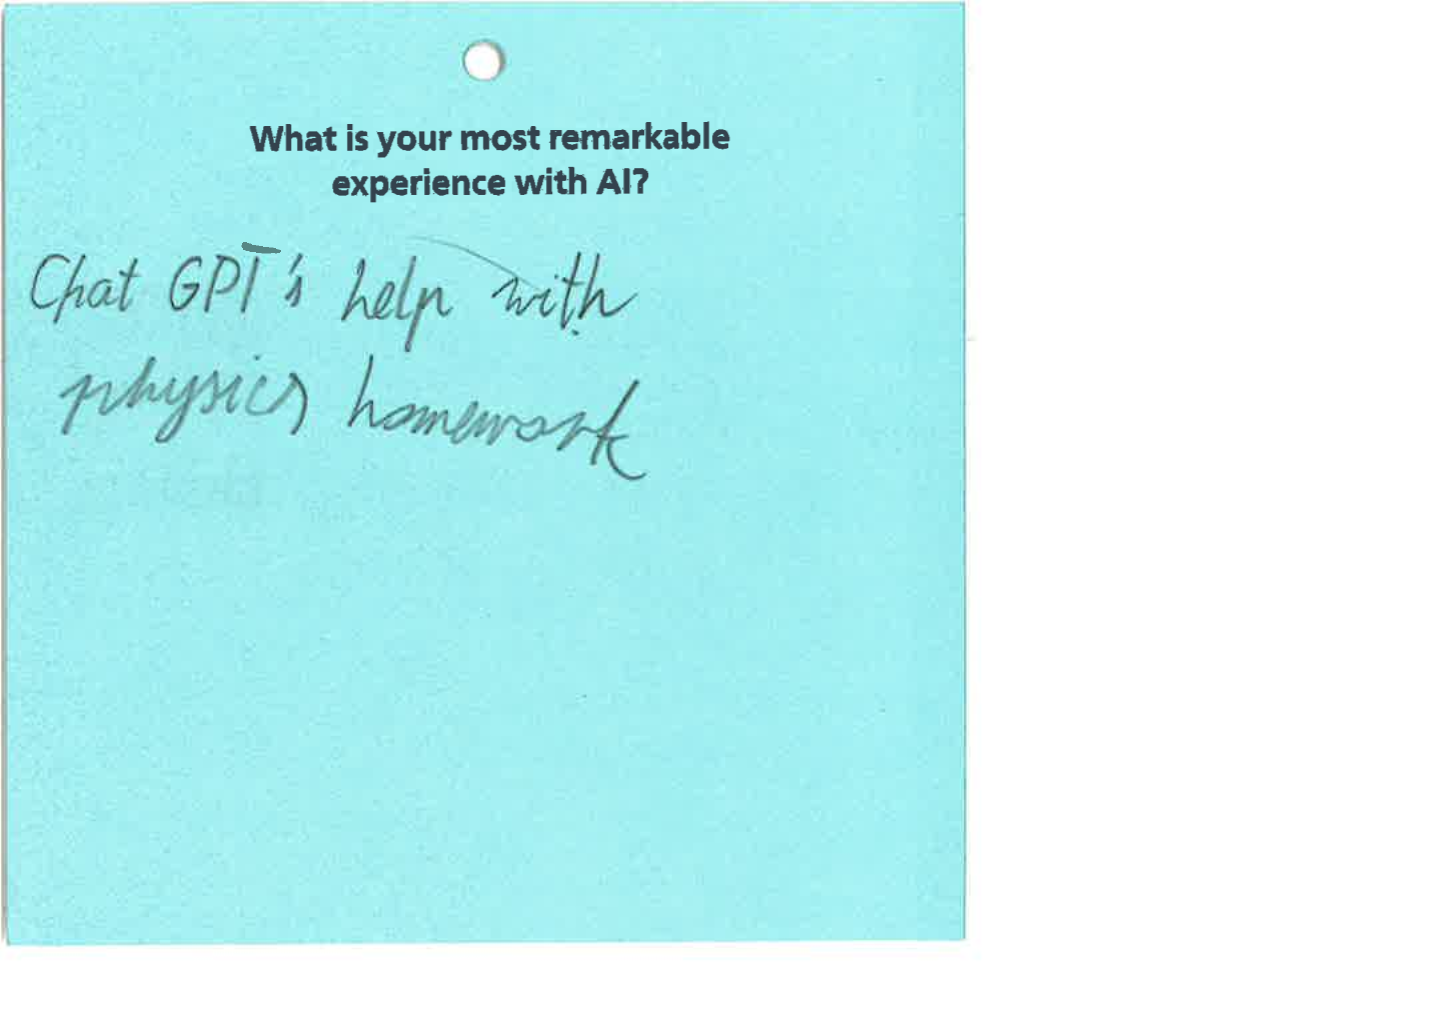 What is your most remarkable
experience with AI?
Chat GPT's help with
physics homework